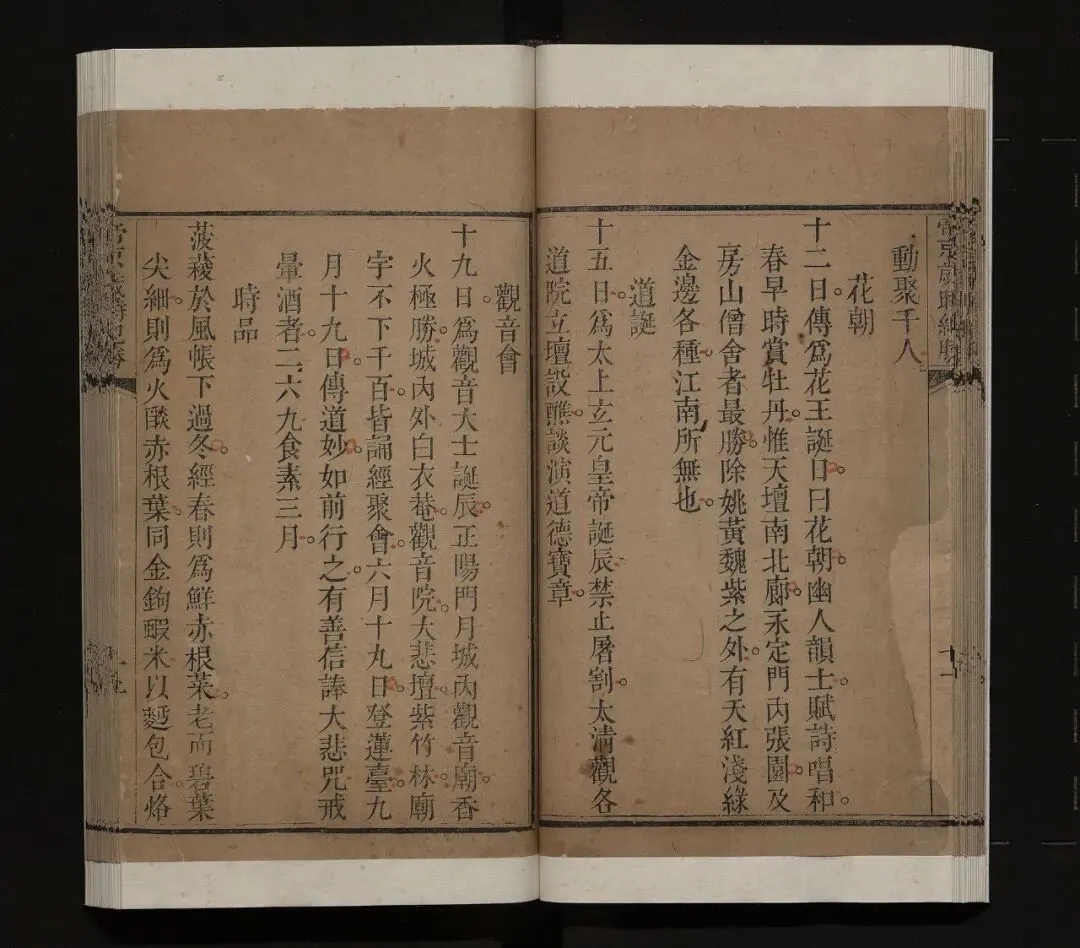 帝京歲時紀勝
動聚千人
花朝
十二日傳爲花王誕日曰花朝幽人韻士賦詩唱和
春早時賞牡丹惟天壇南北廊永定門內張園及
房山僧舍者最勝除姚黃魏紫之外有天紅淺綠
金邊各種江南所無也
道誕
十五日爲太上玄元皇帝誕辰禁止屠割太清觀各
道院立壇設醮談演道德寶章
觀音會
十九日爲觀音大士誕辰正陽門月城內觀音廟香
火極勝城內外白衣菴觀音院大悲壇紫竹林廟
宇不下千百皆誦經聚會六月十九日登蓮臺九
月十九日傳道妙如前行之有善信諷大悲咒戒
暈酒者二六九食素三月
時品
菠薐於風帳下過冬經春則爲鮮赤根菜老而碧葉
尖細則爲火燄赤根葉同金鉤蝦米以麪包合烙